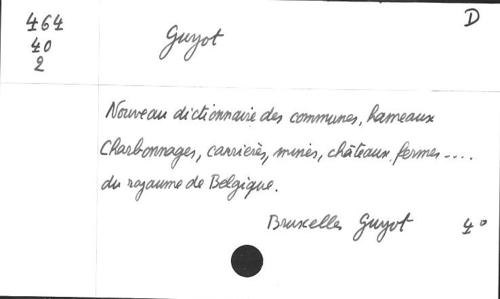 464
40
2
D
Guyot
Nouveau dictionnaire des communes, hameaux
Charbonnages, carrières, mines, châteaux, fermes ....
du royaume de Belgique.
Bruxelles Guyot 4°